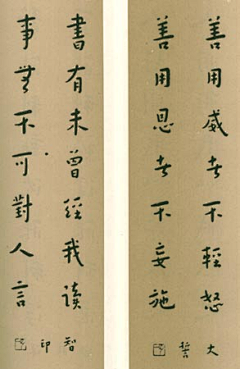 善用威者不輕怒
善用恩者不妄施
大誓
書有未曾經我读
事無不可對人言
智印